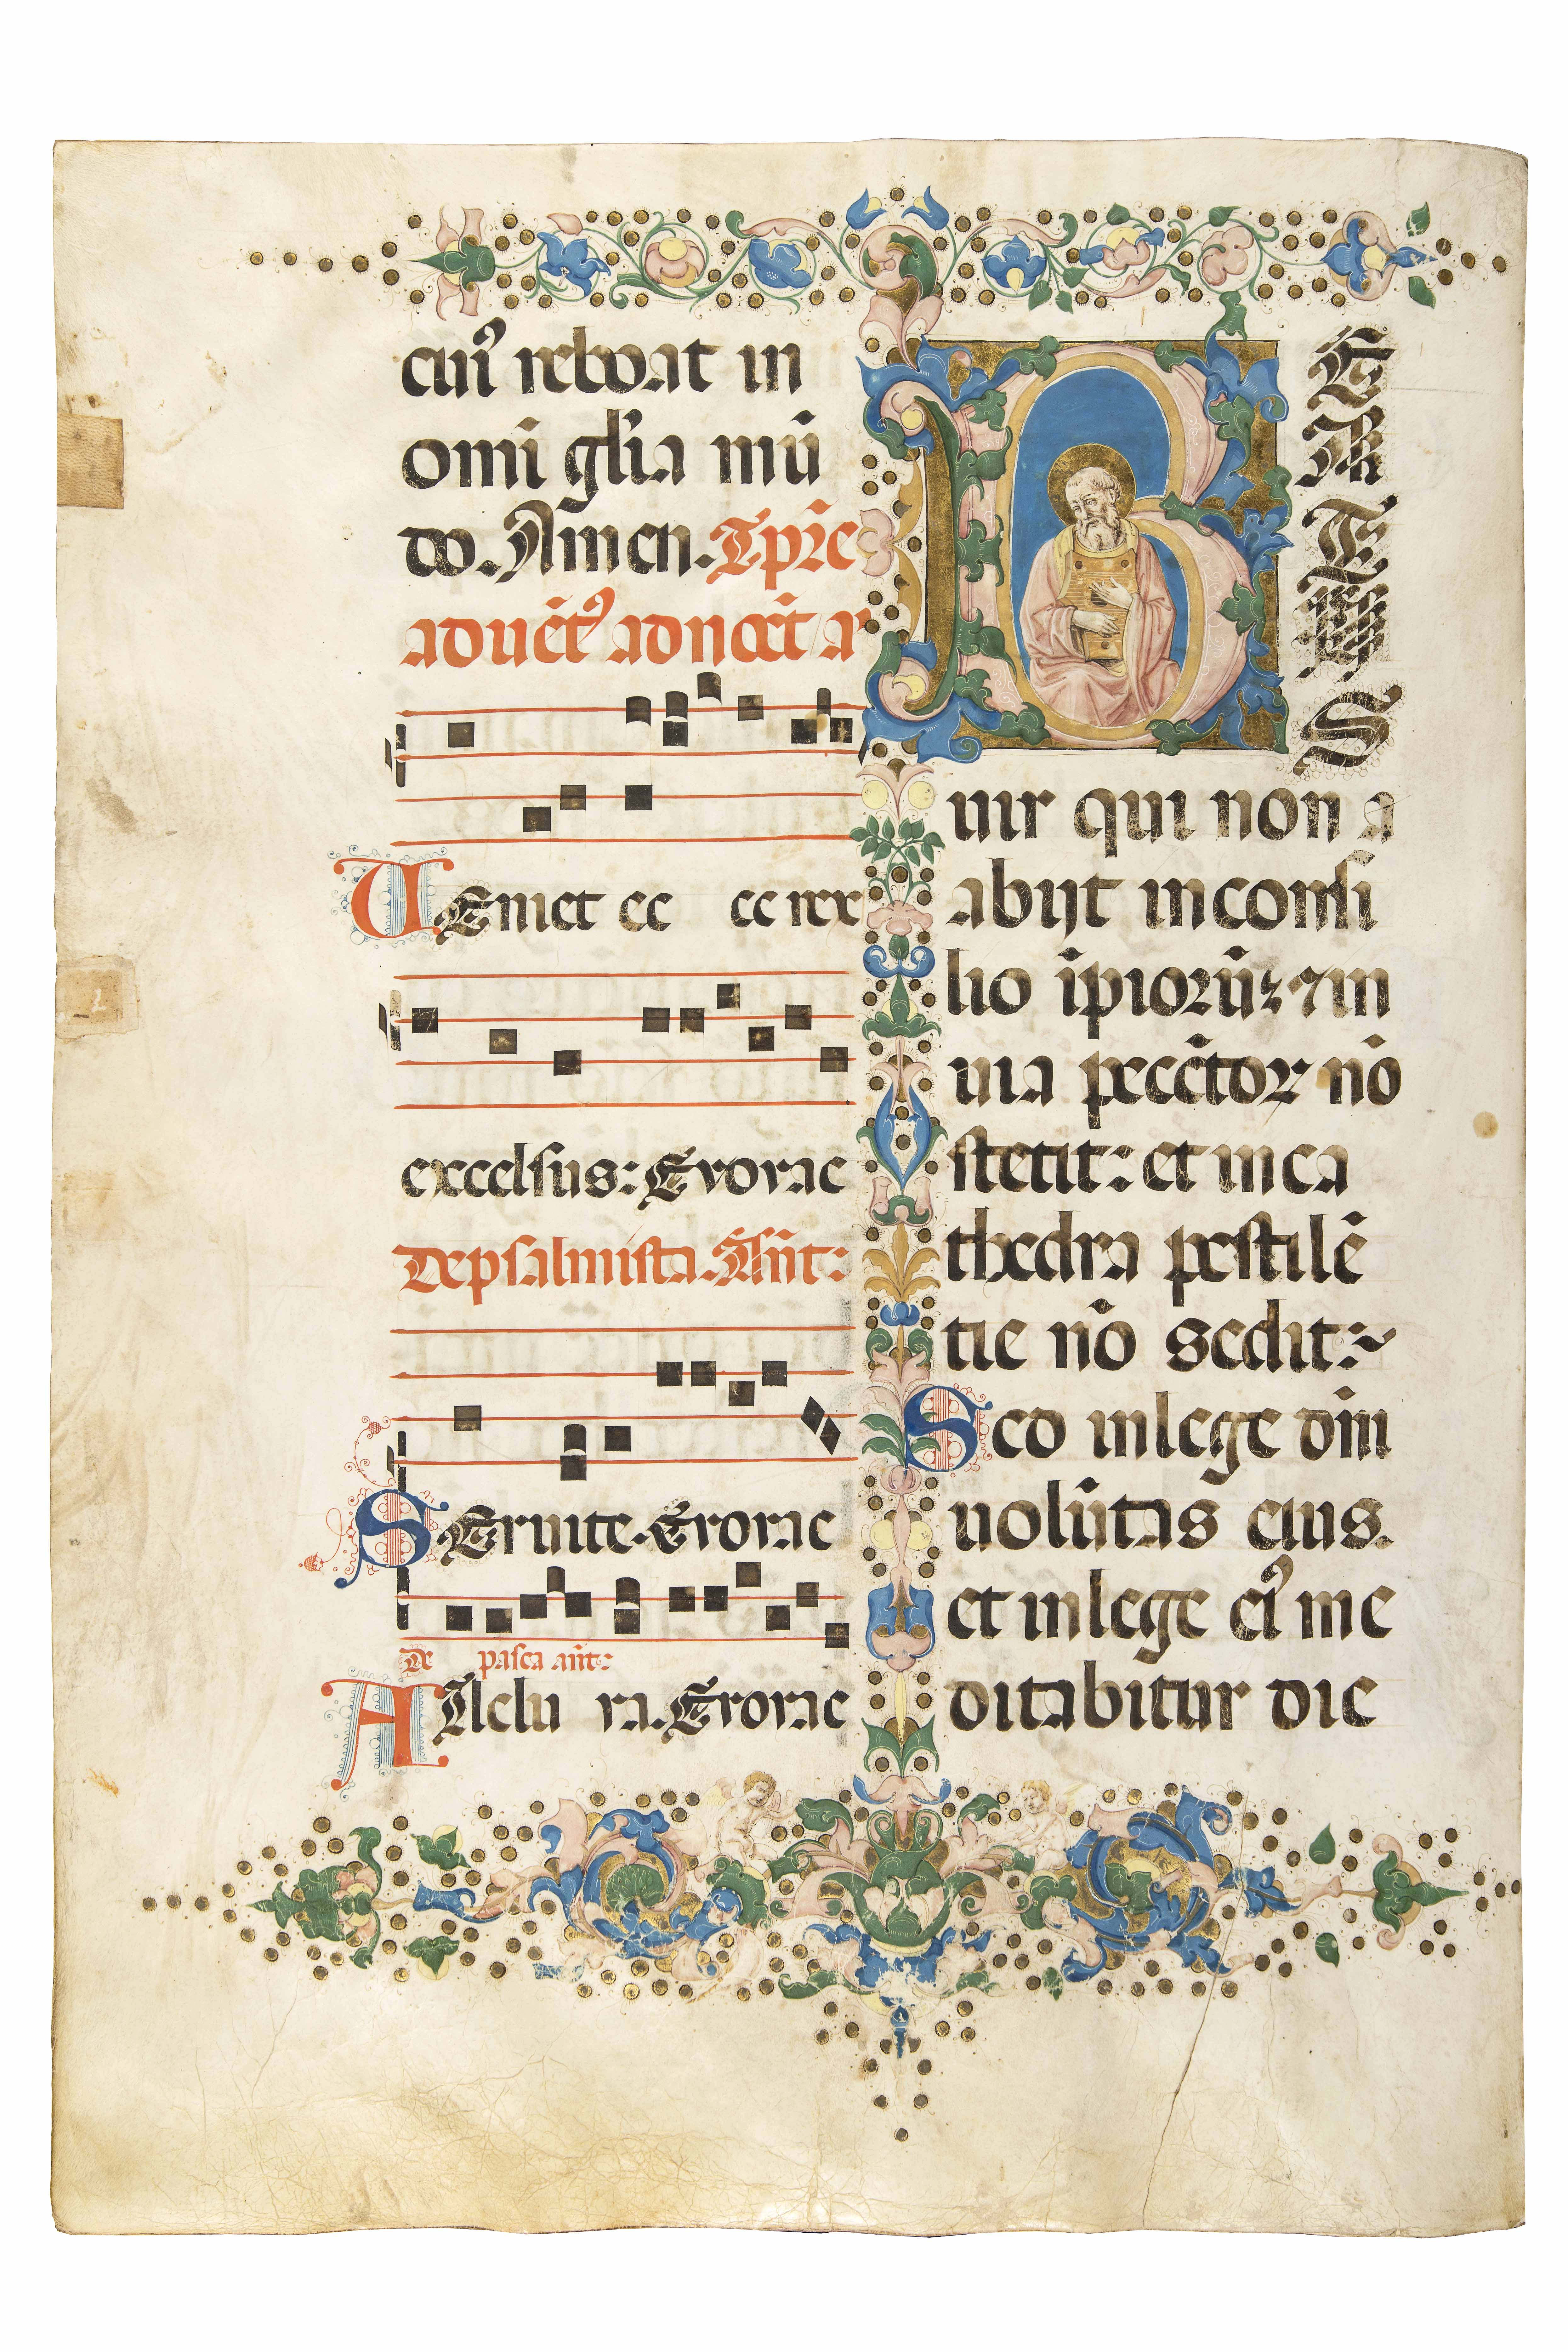 cui⁹ reboat in
om̄i gl̄ia mū
do. Amen. Tp̄re
aduēt⁹ ad noct̄ a
UEniet ec ce rex
excelsus: Evovae
De psalmista. Añt:
SEruite. Evovae
De pasca añt:
ALlelu ia. Evovae
B
E
A
T
V
S
uir qui non a
abijt in consi
lio īpiorū: ⁊ in
uia peccātor nō
stetit: et in ca
thedra pestilē
tie nō sedit:
Sed in lege dn̄i
uolūtas eius.
et in lege ei⁹ me
ditabitur die